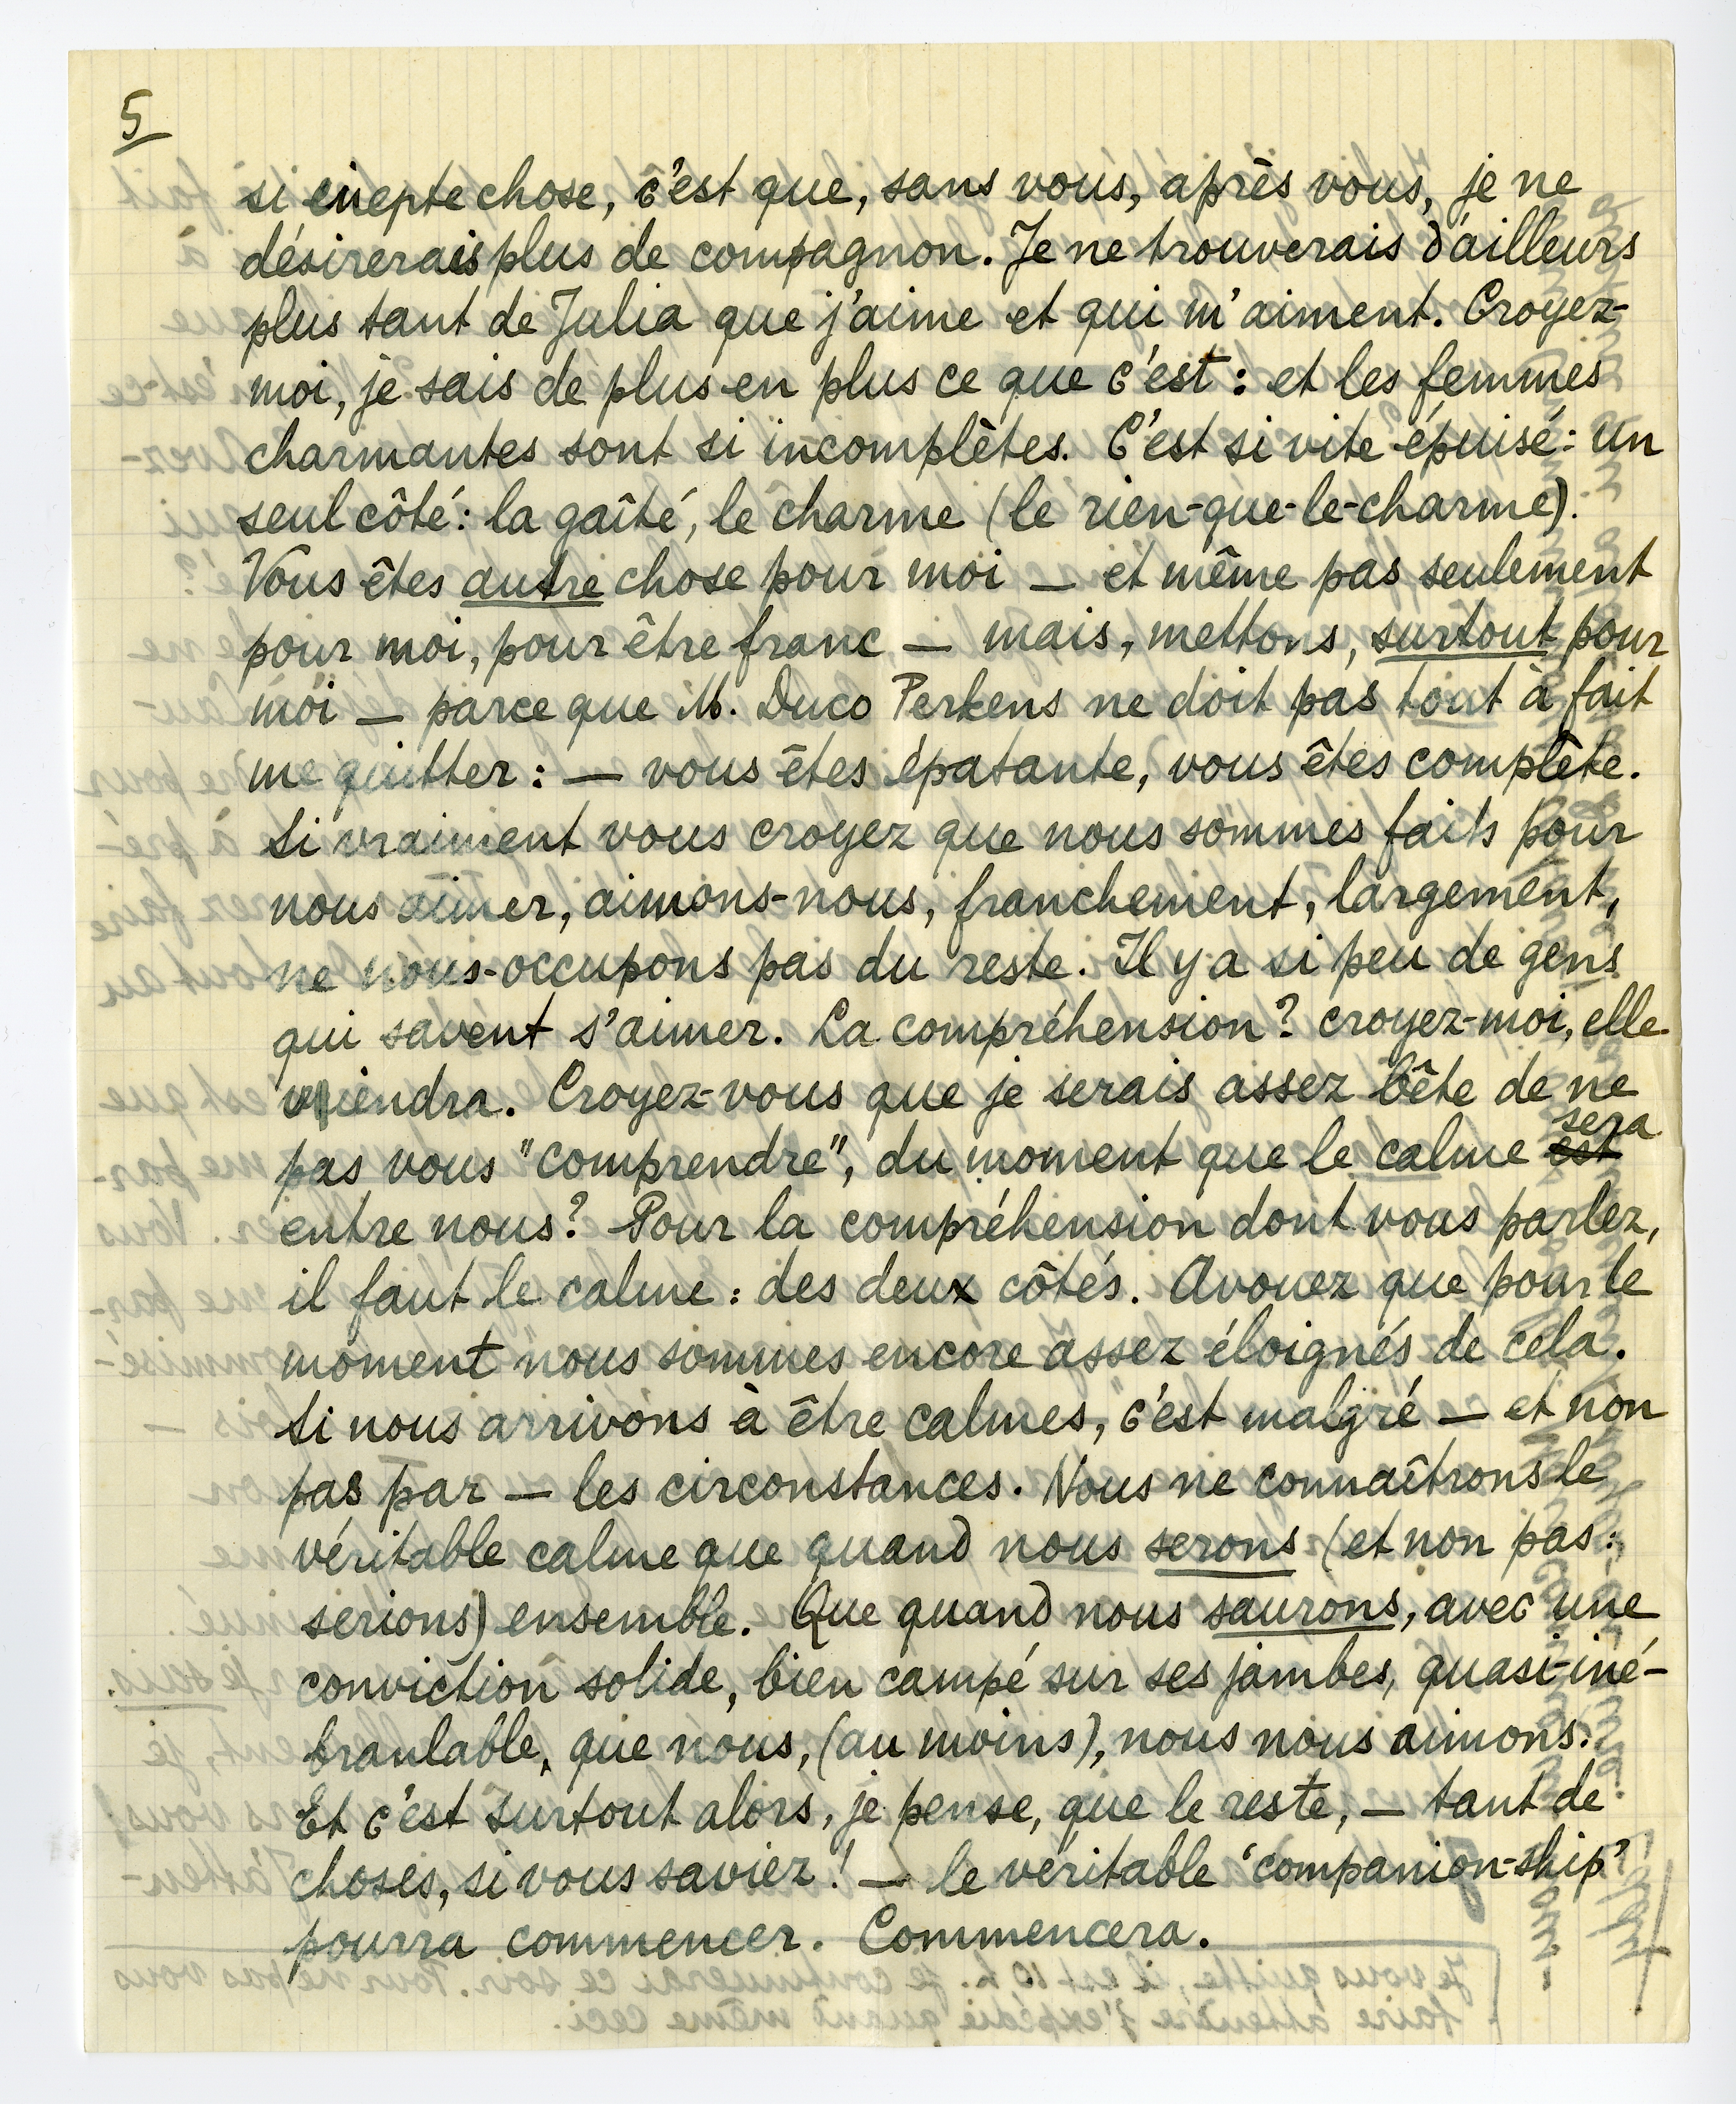 5
si inepte chose, c'est que, sans vous, après vous, je ne
désirerais plus de compagnon. Je ne trouverais d'ailleurs
plus tant de Julia que j'aime et qui m'aiment. Croyez-
moi, je sais de plus en plus ce que c'est : et les femmes
charmantes sont si incomplètes. C'est si vite épuisé : un
seul côté : la gaîté, le charme (le rien-que-le-charme).
Vous êtes autre chose pour moi — et même pas seulement
pour moi, pour être franc — mais, mettons, surtout pour
moi — parce que M. Duco Perkens ne doit pas tout à fait
me quitter : — vous êtes épatante, vous êtes complète.
Si vraiment vous croyez que nous sommes faits pour
nous aimer, aimons-nous, franchement, largement,
ne nous-occupons pas du reste. Il y a si peu de gens
qui savent s'aimer. La compréhension? croyez-moi, elle
viendra. Croyez-vous que je serais assez bête de ne
pas vous "comprendre", du moment que le calme est sera
entre nous? Pour la compréhension dont vous parlez,
il faut le calme : des deux côtés. Avouez que pour le
moment nous sommes encore assez éloignés de cela.
Si nous arrivons à être calmes, c'est malgré — et non
pas par — les circonstances. Nous ne connaîtrons le
véritable calme que quand nous serons (et non pas :
serions) ensemble. Que quand nous saurons, avec une
conviction solide, bien campé sur ses jambes, quasi-iné-
branlable, que nous, (au moins), nous nous aimons.
Et c'est surtout alors, je pense, que le reste, — tant de
choses, si vous saviez! — le véritable 'companion-ship'
pourra commencer. Commencera.